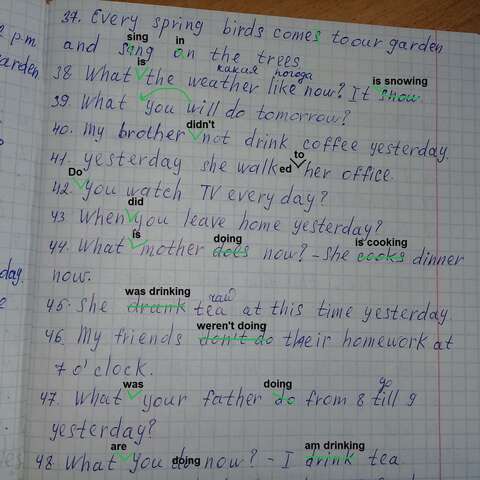 37. Every spring birds comes to our garden
2 p.m.
sing in
and sang on the trees
garden
is какая погода
38. What the weather like now? It snow.
is snowing
39. What you will do tomorrow?
didn't
40. My brother not drink coffee yesterday.
to
41. yesterday she walked her office.
Do
42. you watch TV every day?
did
43. When you leave home yesterday?
is doing is cooking
44. What mother does now? - She cooks dinner
now.
day.
was drinking чай
45. She drank tea at this time yesterday.
weren't doing
46. My friends don't do their homework at
7 o'clock.
was doing до
47. What your father do from 8 till 9
yesterday?
are am drinking
48. What you doing now? - I drink tea